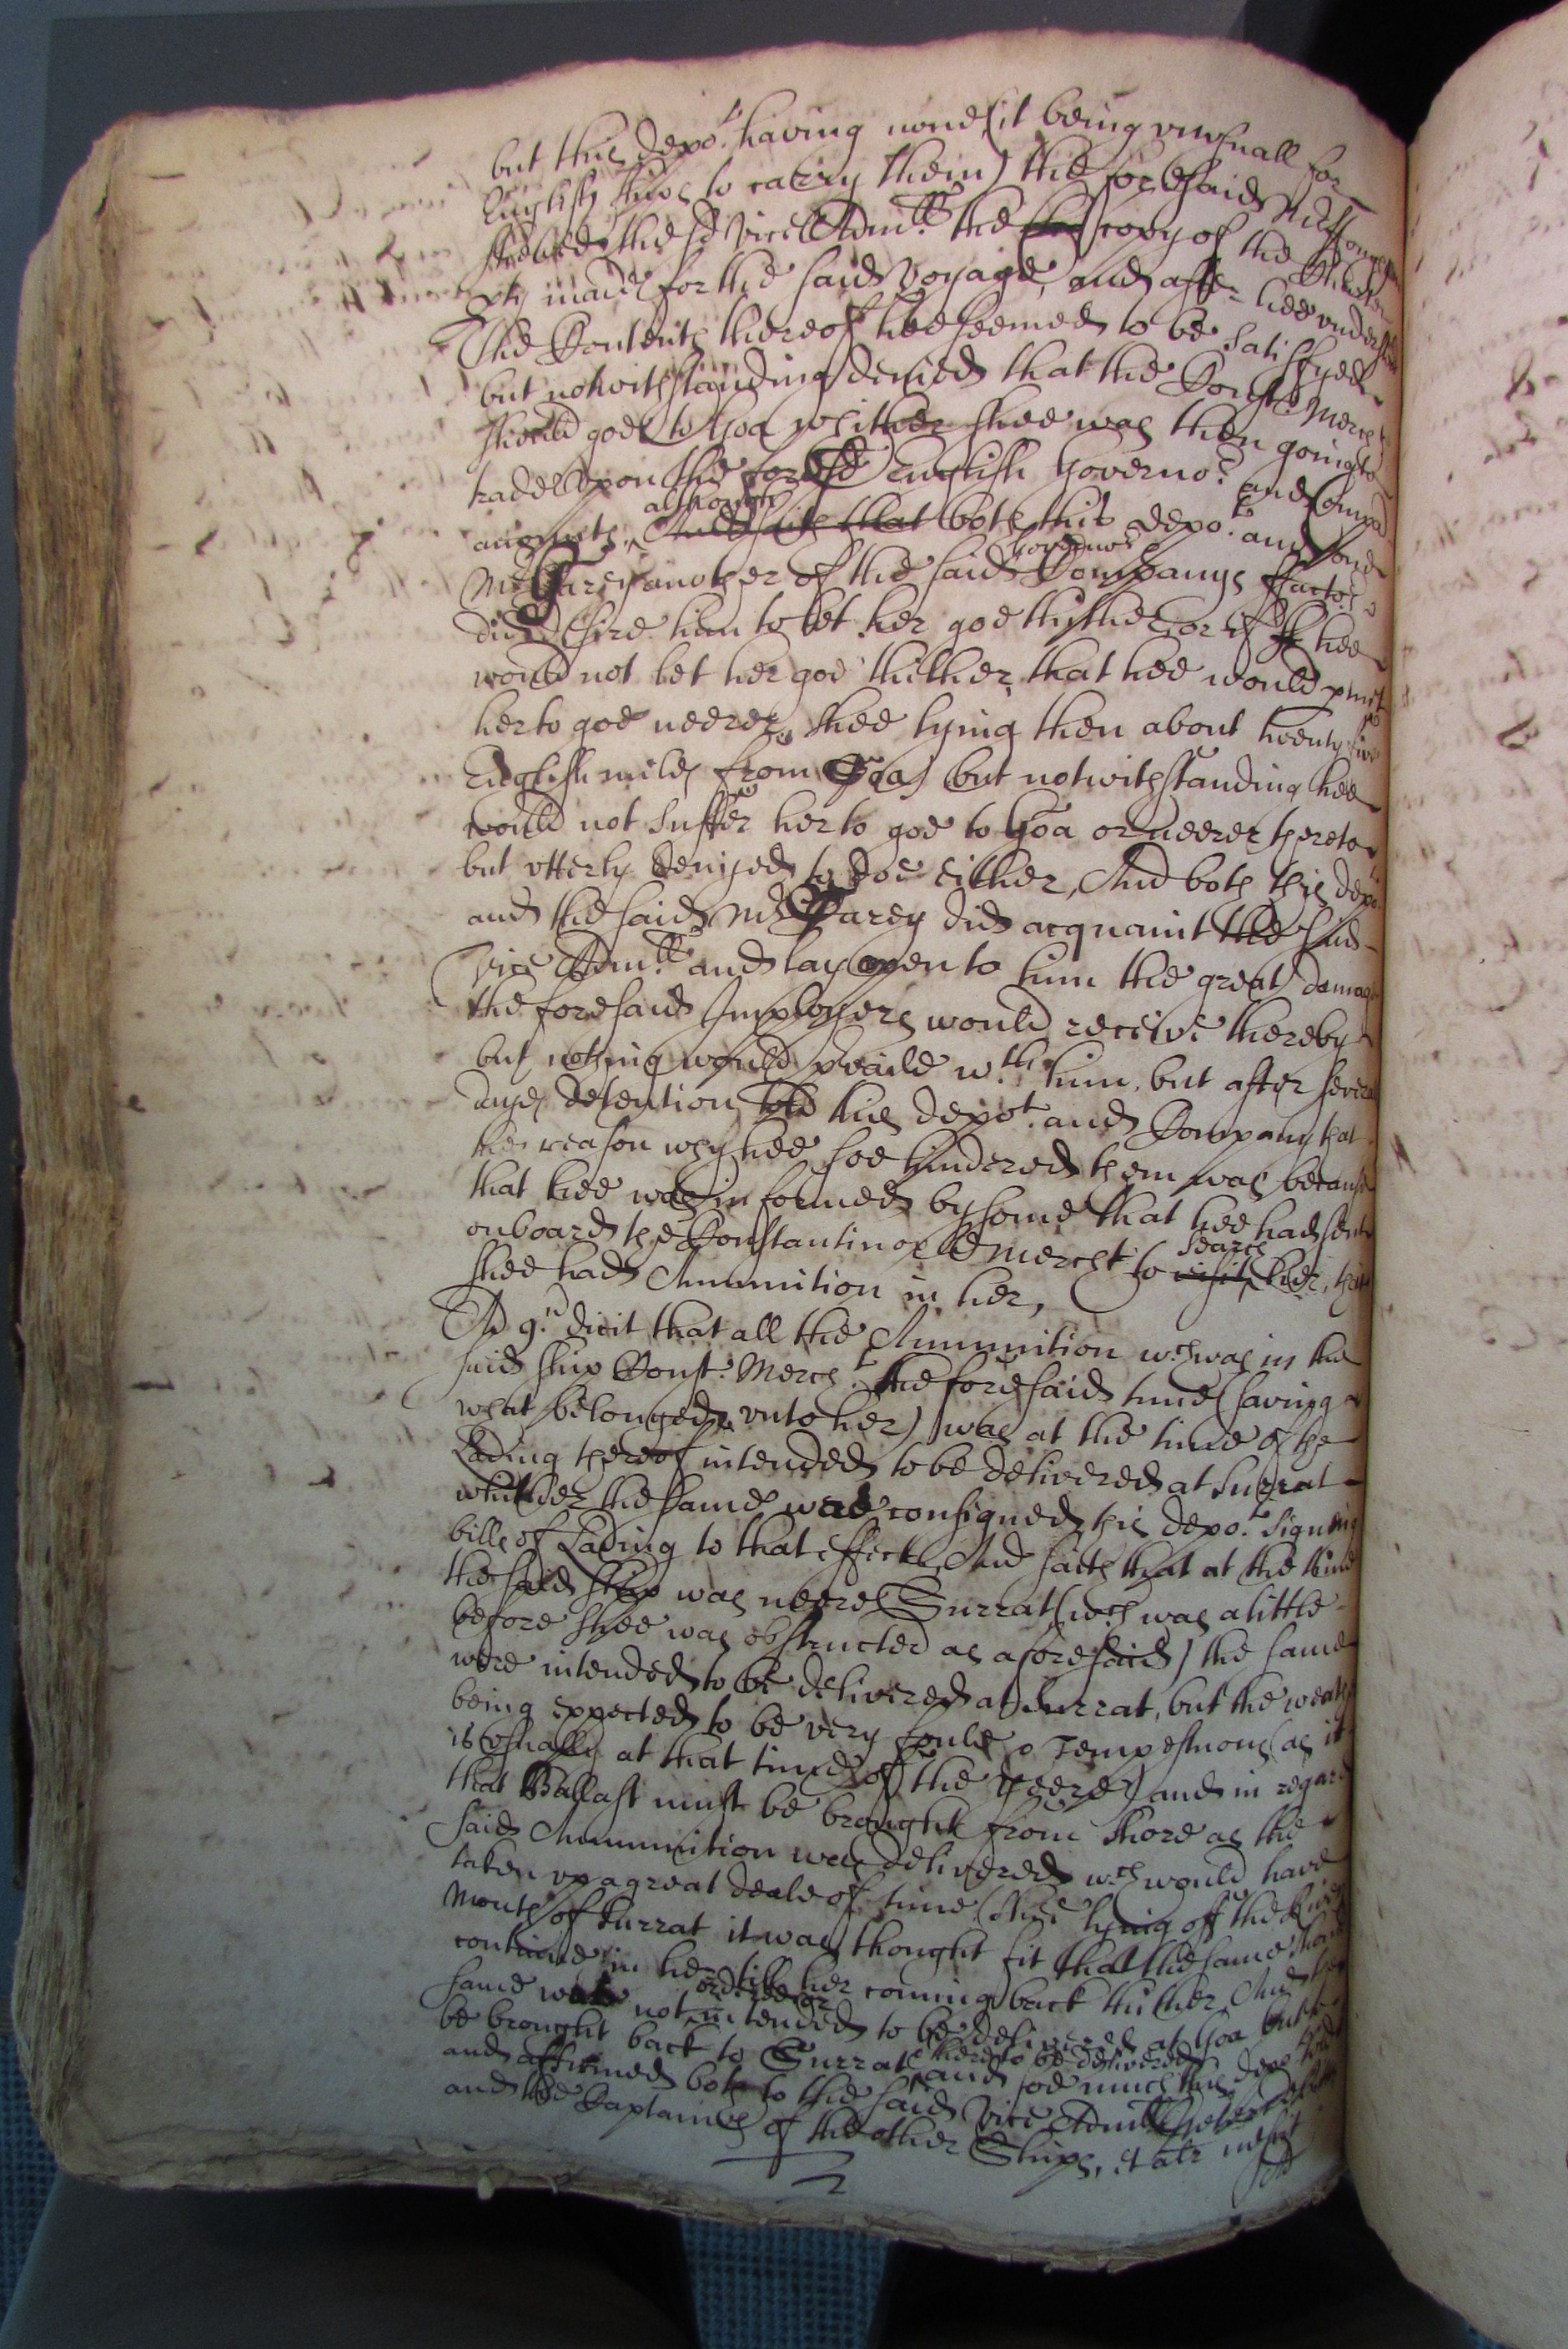 but this depo.t having none (it being vnusuall for
English shipps to carry them) the foresaid Mr
shewed the sd Vice Adm.ll the copy of the Charter
pty made for the said Voyage, and after hee vnderstood
the Contents thereof hee seemed to be satisfyed
but notwithstanding denied that the Const: Merch.t
should goe to Goa whither shee was then going to
trade vpon the foresd English Governo.r and Compa
accompts, although And saith that both this depo.t and one
Mr Garey another of the said Governor Companys ffacto.rs
did desire him to let her goe thither, or if hee
would not let her goe thither, that hee would pmit
her to goe neerer, shee lying then about twenty five
English miles from Goa) but notwithstanding hee
would not suffer her to goe to Goa or neerer thereto
but vtterly denyed to doe either, And both this depo.t
and the said Mr Garey did acquaint the said
Vice Adm.ll and lay open to him the great damage
the foresaid Imployers would receive thereby
but nothing would pvaile w.th him, but after severall
dayes detention told this depo.t and Company that
the reason why hee soe hindered them was because
that hee was informed by some that hee had sent
onboard the Constantinople Merch.t to visit search her, that
shee had Ammunition in her,
Ad 9.m dicit that all the Ammunition w.ch was in the
said shipp Const: Merch.t the foresaid time (saving
what belonged vnto her) was at the time of the
Lading thereof intended to be delivered at Surrat
whither the same was consigned, this depo.t signing
bills of Lading to that effect, And saith that at the time
the said shipp was neere Surrat (w.ch was a little
before shee was obstructed as aforesaid) the same
were intended to be delivered at Surrat, but the weather
being expected to be very foule & Tempestuous (as it
is vsually at that time of the Yeere) and in regard
that Ballast must be brought from shore as the
said Ammunition was delivered w.ch would have
taken vp a great deale of time (shee lying off the River
Mouth of Surrat it was thought fit that the same should
continue in her till her coming back thither, And the
same was not ordered or intended to be delivered at Goa but to
be brought back to Surrat there to be delivered
and affirmed both to the said and soe much this depo.t told
and the Captaines of the other Shipps, Et alr nescit